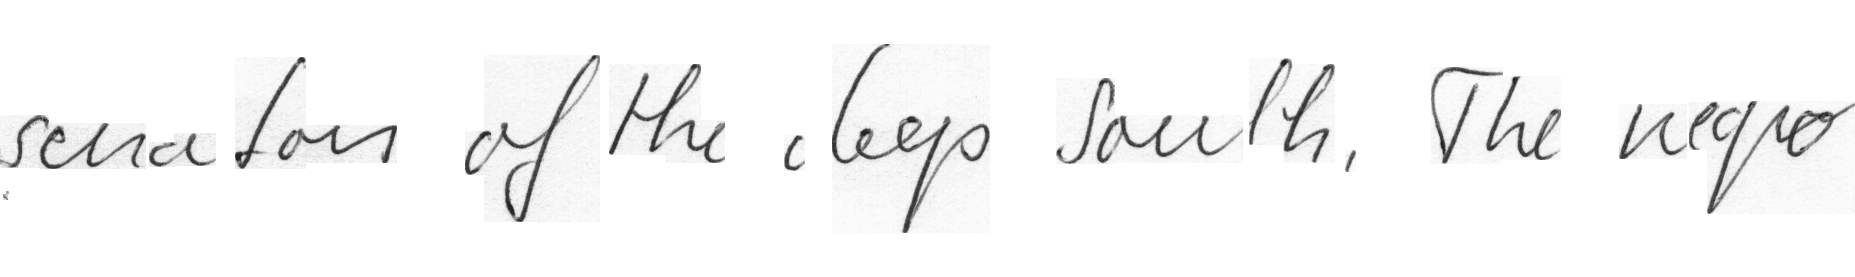 senators of the deep South. The negro